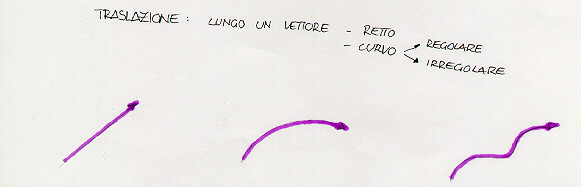 TRASLAZIONE : LUNGO UN VETTORE - RETTO
- CURVO REGOLARE
IRREGOLARE